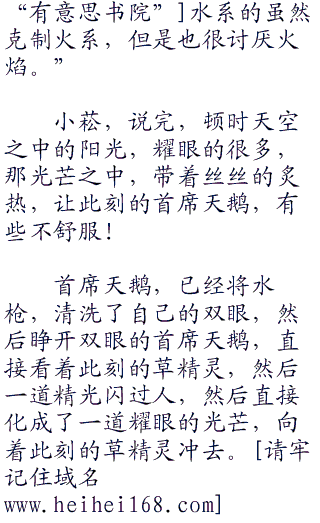 “有意思书院”]水系的虽然
克制火系，但是也很讨厌火
焰。”
小菘，说完，顿时天空
之中的阳光，耀眼的很多，
那光芒之中，带着丝丝的炙
热，让此刻的首席天鹅，有
些不舒服！
首席天鹅，已经将水
枪，清洗了自己的双眼，然
后睁开双眼的首席天鹅，直
接看着此刻的草精灵，然后
一道精光闪过人，然后直接
化成了一道耀眼的光芒，向
着此刻的草精灵冲去。[请牢
记住域名
www.heihei168.com]